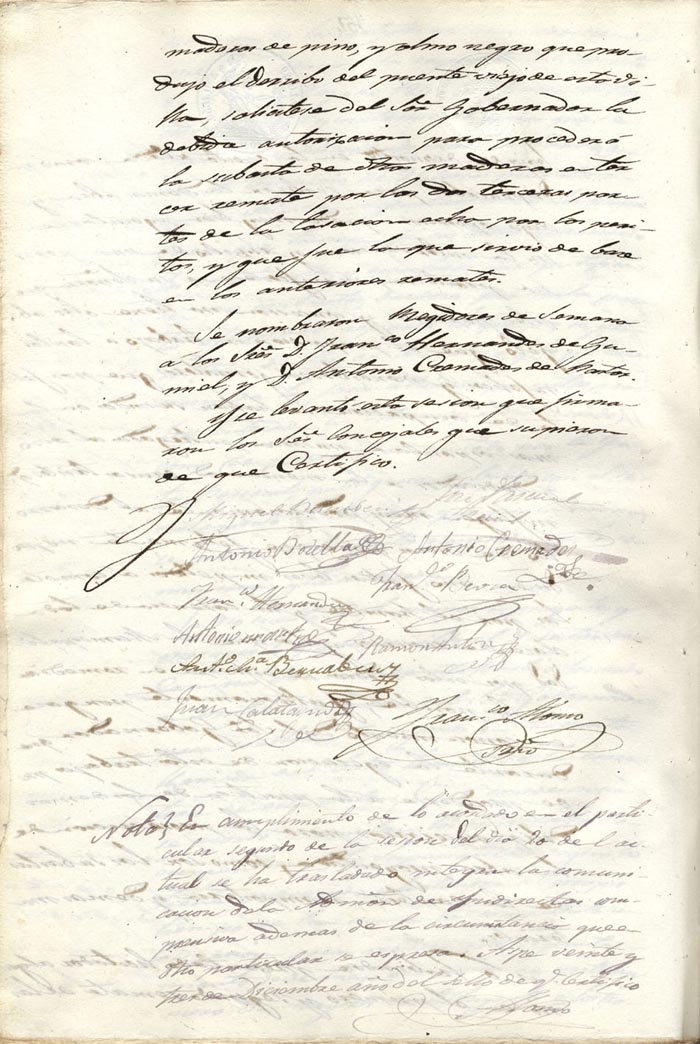 maderas de pino, y olmo negro que pro-
dujo el derribo del puente viejo de esta vi-
lla, solicitese del Sor. Gobernador la
debida autorizacion para proceder á
la subasta de dhas maderas en ter
cer remate por las dos terceras par-
tes de la tasacion echa por los peri-
tos, y que fue la que sirvio de base
en los anteriores remates.
Se nombraron Regidores de Semana
a los Sres. D. Franco. Hernandes de Gu-
miel, y D. Antonio Cremades de Pastor.
Y se levantó esta sesion que firma-
ron los Sres. Concejales que supieron
de que Certifico.
José Pascual
Antonio Botella Antonio Cremades
Franco. Hernandez
Ramon Anton
Juan Calatayud Franco. Alonso
Nota; En cumplimiento de lo acordado en el parti-
cular segundo de la sesion del dia 20 de l ac-
tual se ha trasladado integra la comuni-
cacion de la Admon de Yndirectas com-
prensiva ademas de la circunstancia que en
dho particular se espresa. Aspe veinte y
tres de Diciembre año del sello de q. Certifico
Alonso